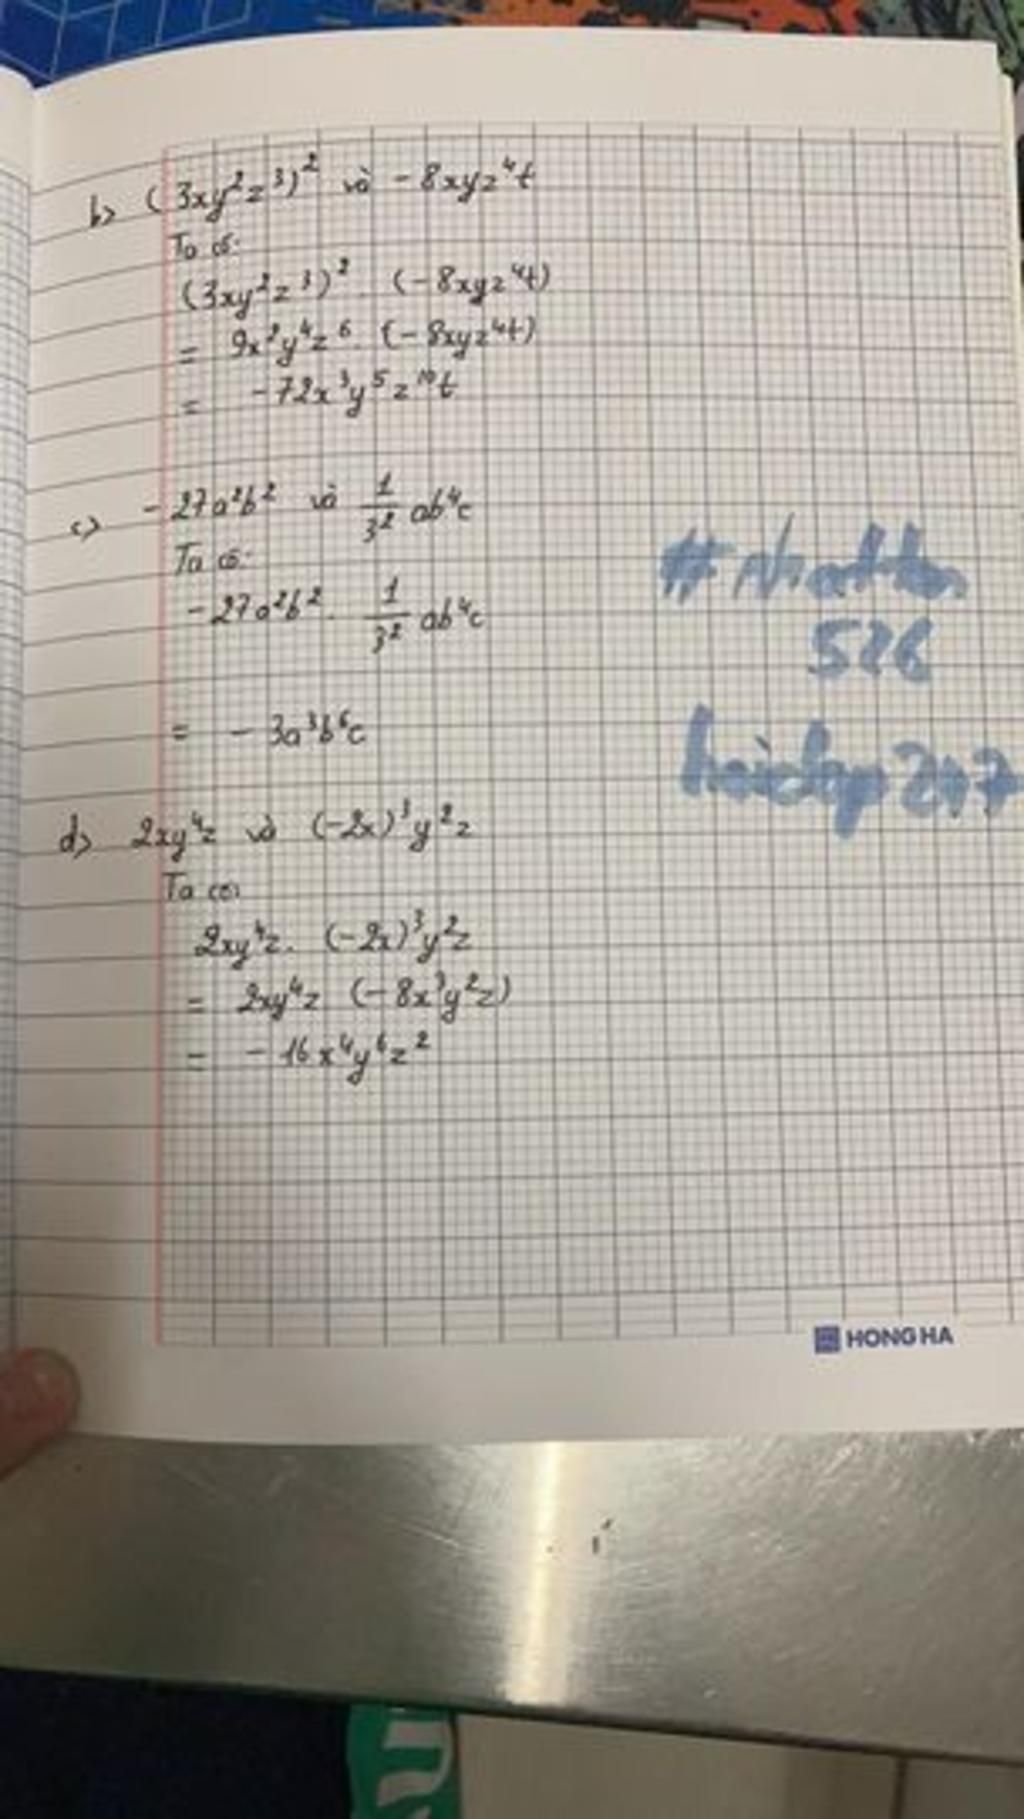 b) (3xy²z³)² và -8xyz⁴t
Ta có:
(3xy²z³)² . (-8xyz⁴t)
= 9x²y⁴z⁶ . (-8xyz⁴t)
= -72x³y⁵z¹⁰t
c) -27a²b² và 1/3² ab⁴c
Ta có:
-27a²b² . 1/3² ab⁴c
= -3a³b⁶c
d) 2xy⁴z và (-2x)³y²z
Ta có:
2xy⁴z . (-2x)³y²z
= 2xy⁴z (-8x³y²z)
= -16x⁴y⁶z²
526
hoidap247
HONG HA